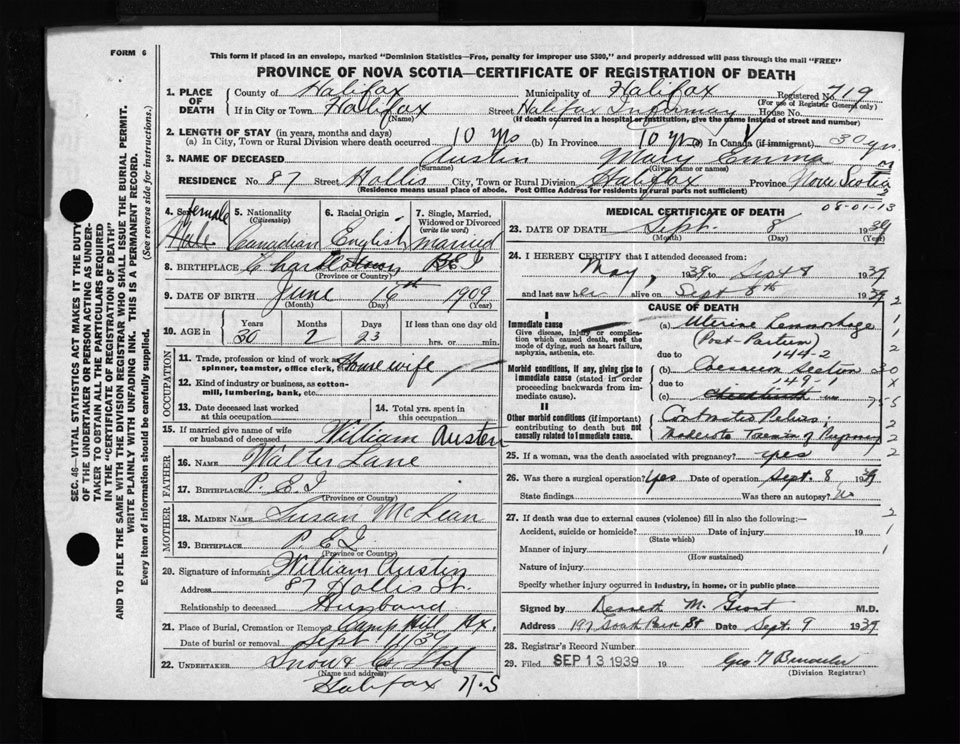 FORM 6
This form if placed in an envelope, marked "Dominion Statistics—Free, penalty for improper use $300," and properly addressed will pass through the mail "FREE"
PROVINCE OF NOVA SCOTIA—CERTIFICATE OF REGISTRATION OF DEATH
1. PLACE OF DEATH
County of Halifax Municipality of Halifax Registered No. 719
(For use of Registrar General only)
If in City or Town Halifax Street Halifax Infirmary House No.
(Name) (If death occurred in a hospital or institution, give the name instead of street and number)
2. LENGTH OF STAY (in years, months and days)
(a) In City, Town or Rural Division where death occurred 10 yrs (b) In Province 10 yrs (c) In Canada (if immigrant) 30 yrs.
3. NAME OF DECEASED Austin Mary Emma
(Surname) (Given name or names)
RESIDENCE No. 87 Street Hollis City, Town or Rural Division Halifax Province Nova Scotia
(Residence means usual place of abode. Post Office Address for residents in rural parts not sufficient)
4. Sex female Male
5. Nationality (Citizenship) Canadian
6. Racial Origin English
7. Single, Married, Widowed or Divorced (write the word) Married
8. BIRTHPLACE Charlottetown P.E.I
(Province or Country)
9. DATE OF BIRTH June 16th 1909
(Month) (Day) (Year)
10. AGE in Years Months Days If less than one day old
30 2 23 hrs. or min.
OCCUPATION
11. Trade, profession or kind of work as spinner, teamster, office clerk, etc. Housewife
12. Kind of industry or business, as cotton-mill, lumbering, bank, etc.
13. Date deceased last worked at this occupation
14. Total yrs. spent in this occupation
15. If married give name of wife or husband of deceased William Austen
FATHER
16. NAME Walter Lane
17. BIRTHPLACE P.E.I
(Province or Country)
MOTHER
18. MAIDEN NAME Susan McLean
19. BIRTHPLACE P.E.I
(Province or Country)
20. Signature of informant William Austin
Address 87 Hollis St.
Relationship to deceased Husband
21. Place of Burial, Cremation or Removal Camp Hill Hx.
Date of burial or removal Sept 11/39
22. UNDERTAKER Snow & Co Ltd
(Name and address)
Halifax N.S
MEDICAL CERTIFICATE OF DEATH
08-01-13
23. DATE OF DEATH Sept. 8 1939
(Month) (Day) (Year)
24. I HEREBY CERTIFY that I attended deceased from:
May, 1939 to Sept 8 1939
and last saw her alive on Sept 8th 1939
CAUSE OF DEATH
I
Immediate cause
Give disease, injury or complication which caused death, not the mode of dying, such as heart failure, asphyxia, asthenia, etc.
(a) Uterine Hemorrhage
(Post-Partum)
due to 144-2
Morbid conditions, if any, giving rise to immediate cause (stated in order proceeding backwards from immediate cause).
(b) Caesarean Section
due to 149-1
(c)
II
Other morbid conditions (if important) contributing to death but not causally related to immediate cause.
Contracted Pelvis,
Moderate Toxemia of Pregnancy
25. If a woman, was the death associated with pregnancy? yes
26. Was there a surgical operation? Yes Date of operation Sept. 8 1939
State findings Was there an autopsy? No
27. If death was due to external causes (violence) fill in also the following:—
Accident, suicide or homicide? Date of injury 19
(State which)
Manner of injury
(How sustained)
Nature of injury
Specify whether injury occurred in industry, in home, or in public place
Signed by M. Grant M.D.
Address 197 South Park St Date Sept. 9 1939
28. Registrar's Record Number
29. Filed SEP 13 1939 19
(Division Registrar)
SEC. 46—VITAL STATISTICS ACT MAKES IT THE DUTY OF THE UNDERTAKER OR PERSON ACTING AS UNDERTAKER TO OBTAIN ALL THE PARTICULARS REQUIRED IN THE "CERTIFICATE OF REGISTRATION OF DEATH" AND TO FILE THE SAME WITH THE DIVISION REGISTRAR WHO SHALL ISSUE THE BURIAL PERMIT.
WRITE PLAINLY WITH UNFADING INK. THIS IS A PERMANENT RECORD.
Every item of information should be carefully supplied. (See reverse side for instructions.)